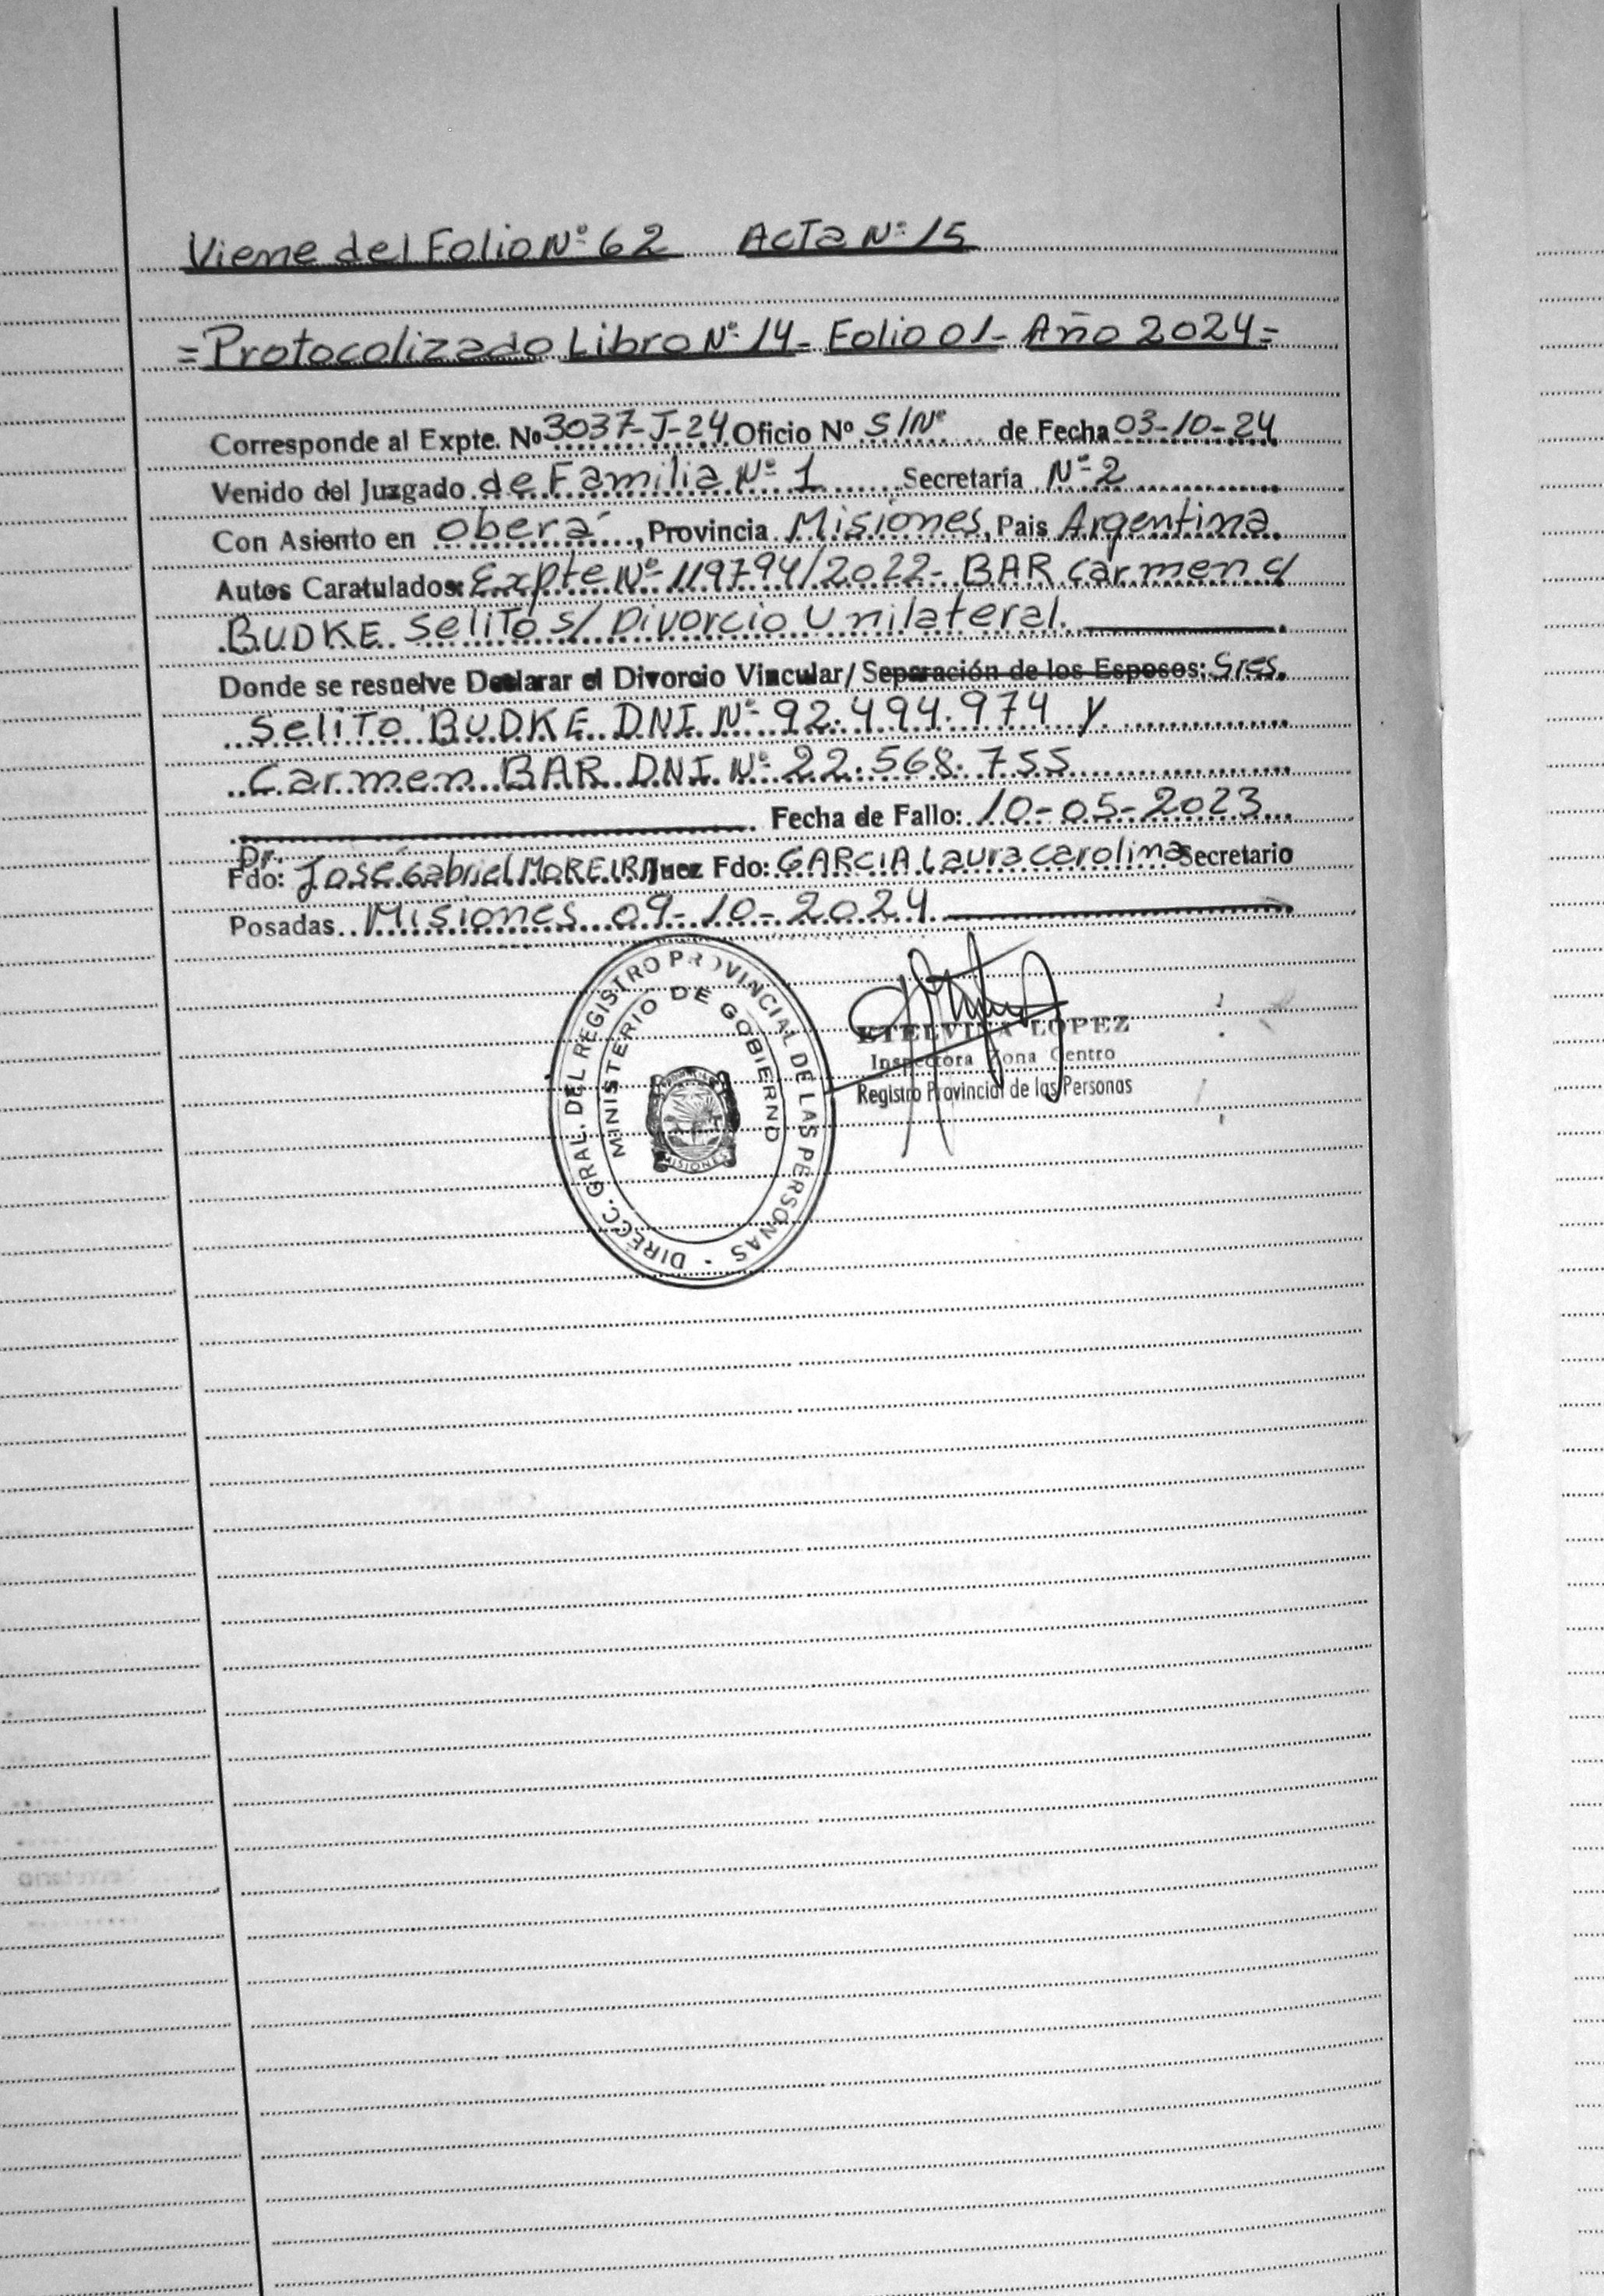 Viene del Folio Nº 62 Acta Nº 15
=Protocolizado Libro Nº 14- Folio 01- Año 2024=
Corresponde al Expte. Nº 3037-J-24 Oficio Nº S/Nº de Fecha 03-10-24
Venido del Juzgado de Familia Nº 1 Secretaría Nº 2
Con Asiento en Oberá, Provincia Misiones, Pais Argentina.
Autos Caratulados: Expte Nº 119794/2022- BAR Carmen c/
BUDKE Selito s/ Divorcio Unilateral.
Donde se resuelve Declarar el Divorcio Vincular/ Separación de los Esposos: Sres.
Selito BUDKE DNI Nº 92.494.974 y
Carmen BAR DNI Nº 22.568.755
Fecha de Fallo: 10-05-2023
Dr.
Fdo: José Gabriel MOREIRA Juez Fdo: GARCIA Laura Carolina Secretario
Posadas Misiones 09-10-2024.
DIRECC. GRAL. DEL REGISTRO PROVINCIAL DE LAS PERSONAS
MINISTERIO DE GOBIERNO
MISIONES
ETELVINA LOPEZ
Inspectora Zona Centro
Registro Provincial de las Personas